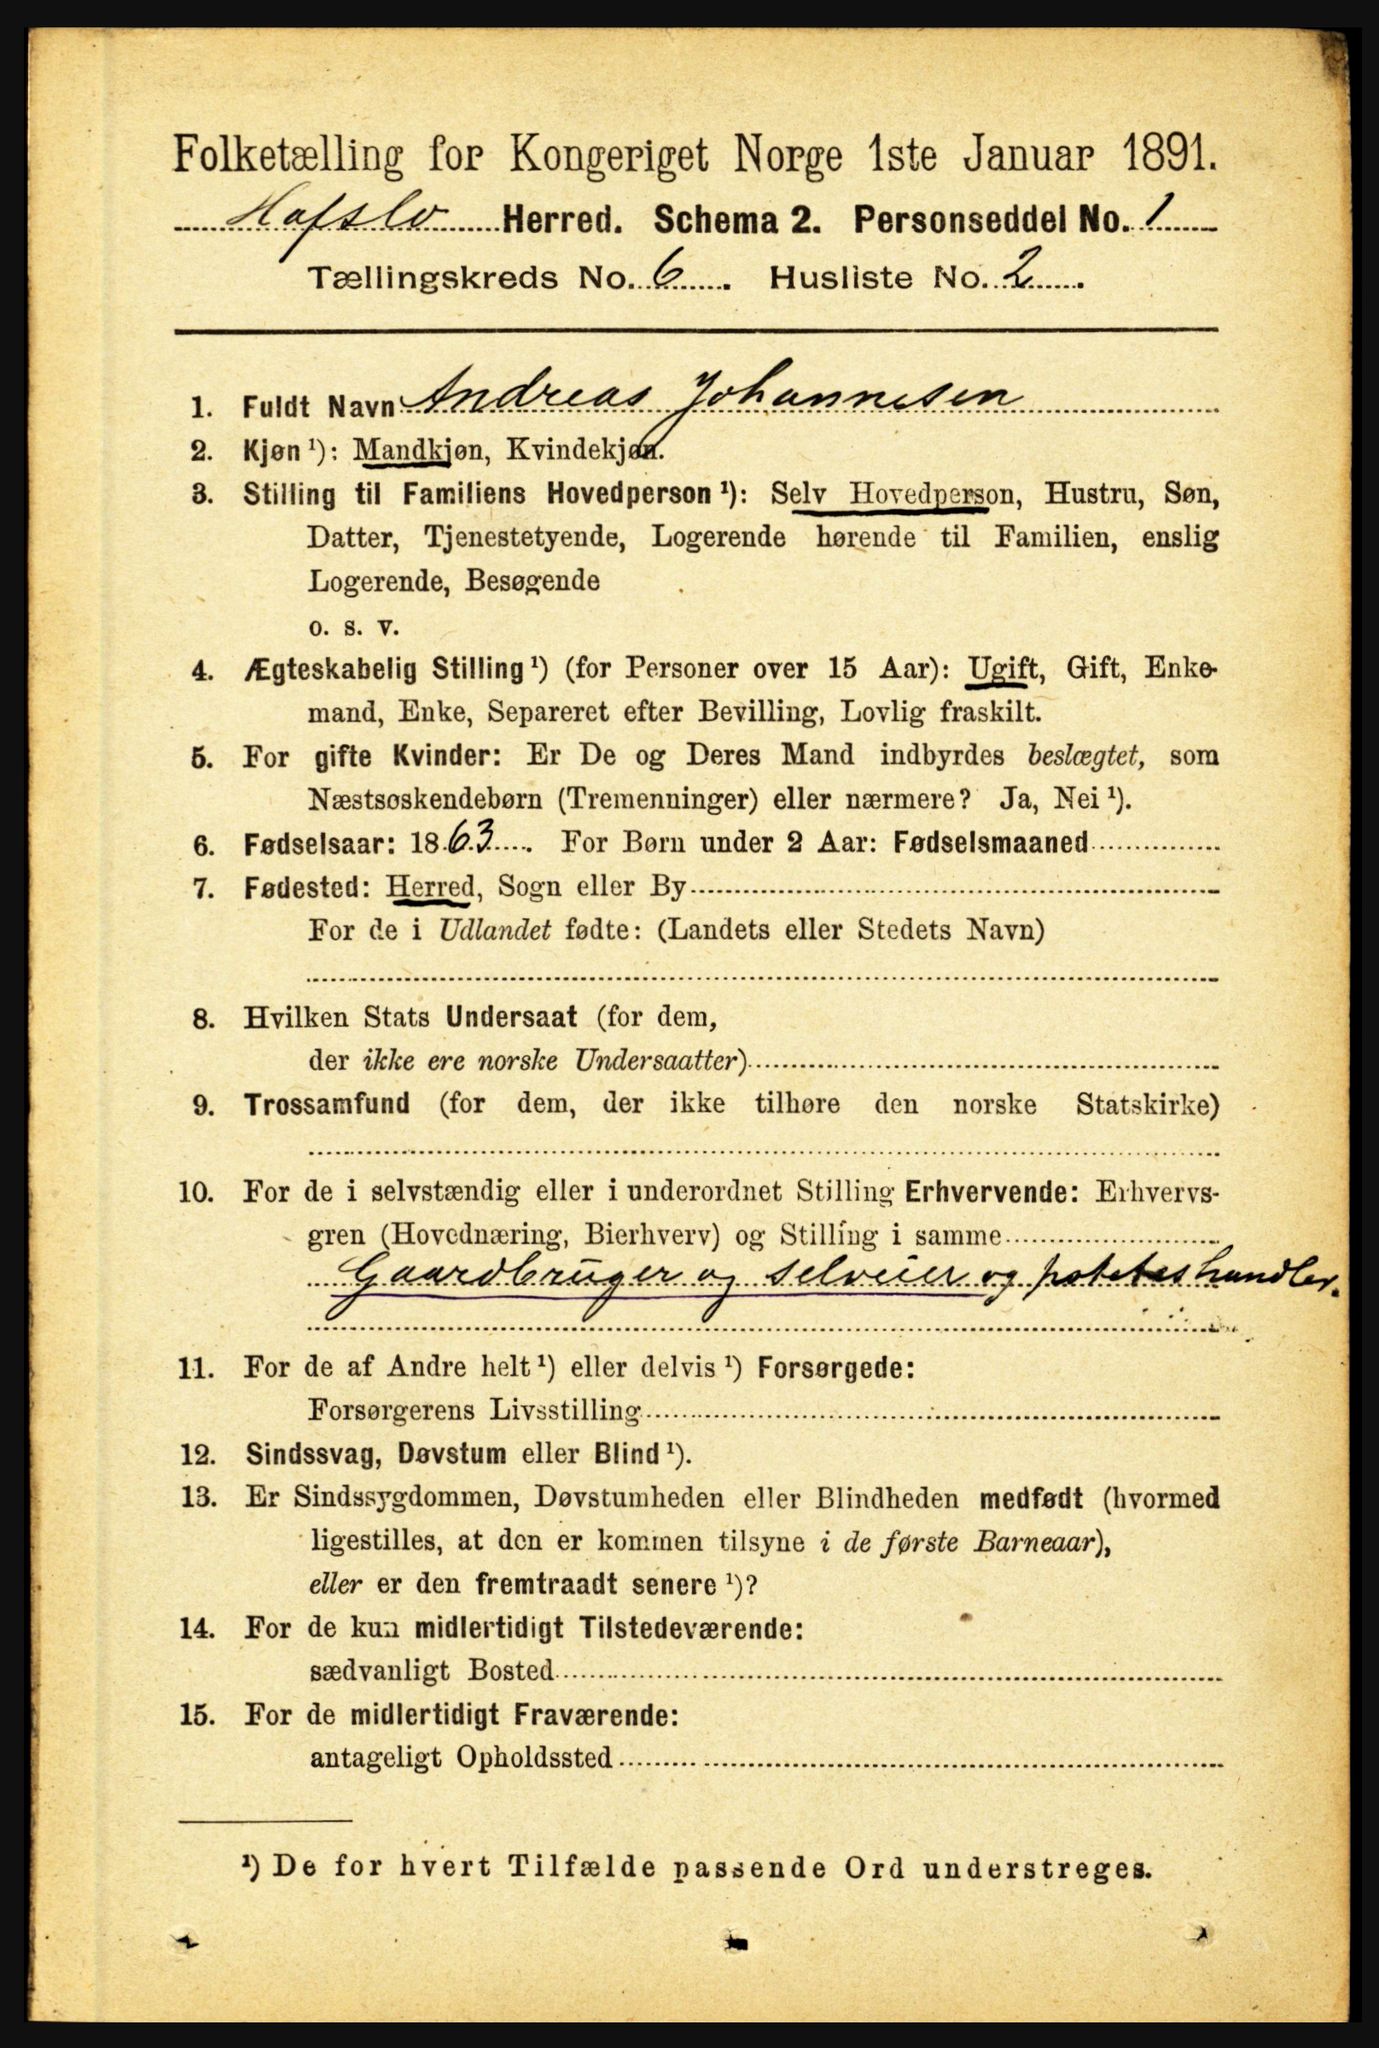 Folketælling for Kongeriget Norge 1ste Januar 1891.
Hafslo Herred. Schema 2. Personseddel No. 1
Tællingskreds No. 6. Husliste No. 2.
1. Fuldt Navn Andreas Johannesen
2. Kjøn ¹): Mandkjøn, Kvindekjøn.
3. Stilling til Familiens Hovedperson ¹): Selv Hovedperson, Hustru, Søn,
Datter, Tjenestetyende, Logerende hørende til Familien, enslig
Logerende, Besøgende
o. s. v.
4. Ægteskabelig Stilling ¹) (for Personer over 15 Aar): Ugift, Gift, Enke-
mand, Enke, Separeret efter Bevilling, Lovlig fraskilt.
5. For gifte Kvinder: Er De og Deres Mand indbyrdes beslægtet, som
Næstsøskendebørn (Tremenninger) eller nærmere? Ja, Nei ¹).
6. Fødselsaar: 1863. For Børn under 2 Aar: Fødselsmaaned
7. Fødested: Herred, Sogn eller By
For de i Udlandet fødte: (Landets eller Stedets Navn)
8. Hvilken Stats Undersaat (for dem,
der ikke ere norske Undersaatter)
9. Trossamfund (for dem, der ikke tilhøre den norske Statskirke)
10. For de i selvstændig eller i underordnet Stilling Erhvervende: Erhvervs-
gren (Hovednæring, Bierhverv) og Stilling i samme
Gaardbruger og selveier og potetes handler.
11. For de af Andre helt ¹) eller delvis ¹) Forsørgede:
Forsørgerens Livsstilling
12. Sindssvag, Døvstum eller Blind ¹).
13. Er Sindssygdommen, Døvstumheden eller Blindheden medfødt (hvormed
ligestilles, at den er kommen tilsyne i de første Barneaar),
eller er den fremtraadt senere ¹)?
14. For de kun midlertidigt Tilstedeværende:
sædvanligt Bosted
15. For de midlertidigt Fraværende:
antageligt Opholdssted
¹) De for hvert Tilfælde passende Ord understreges.